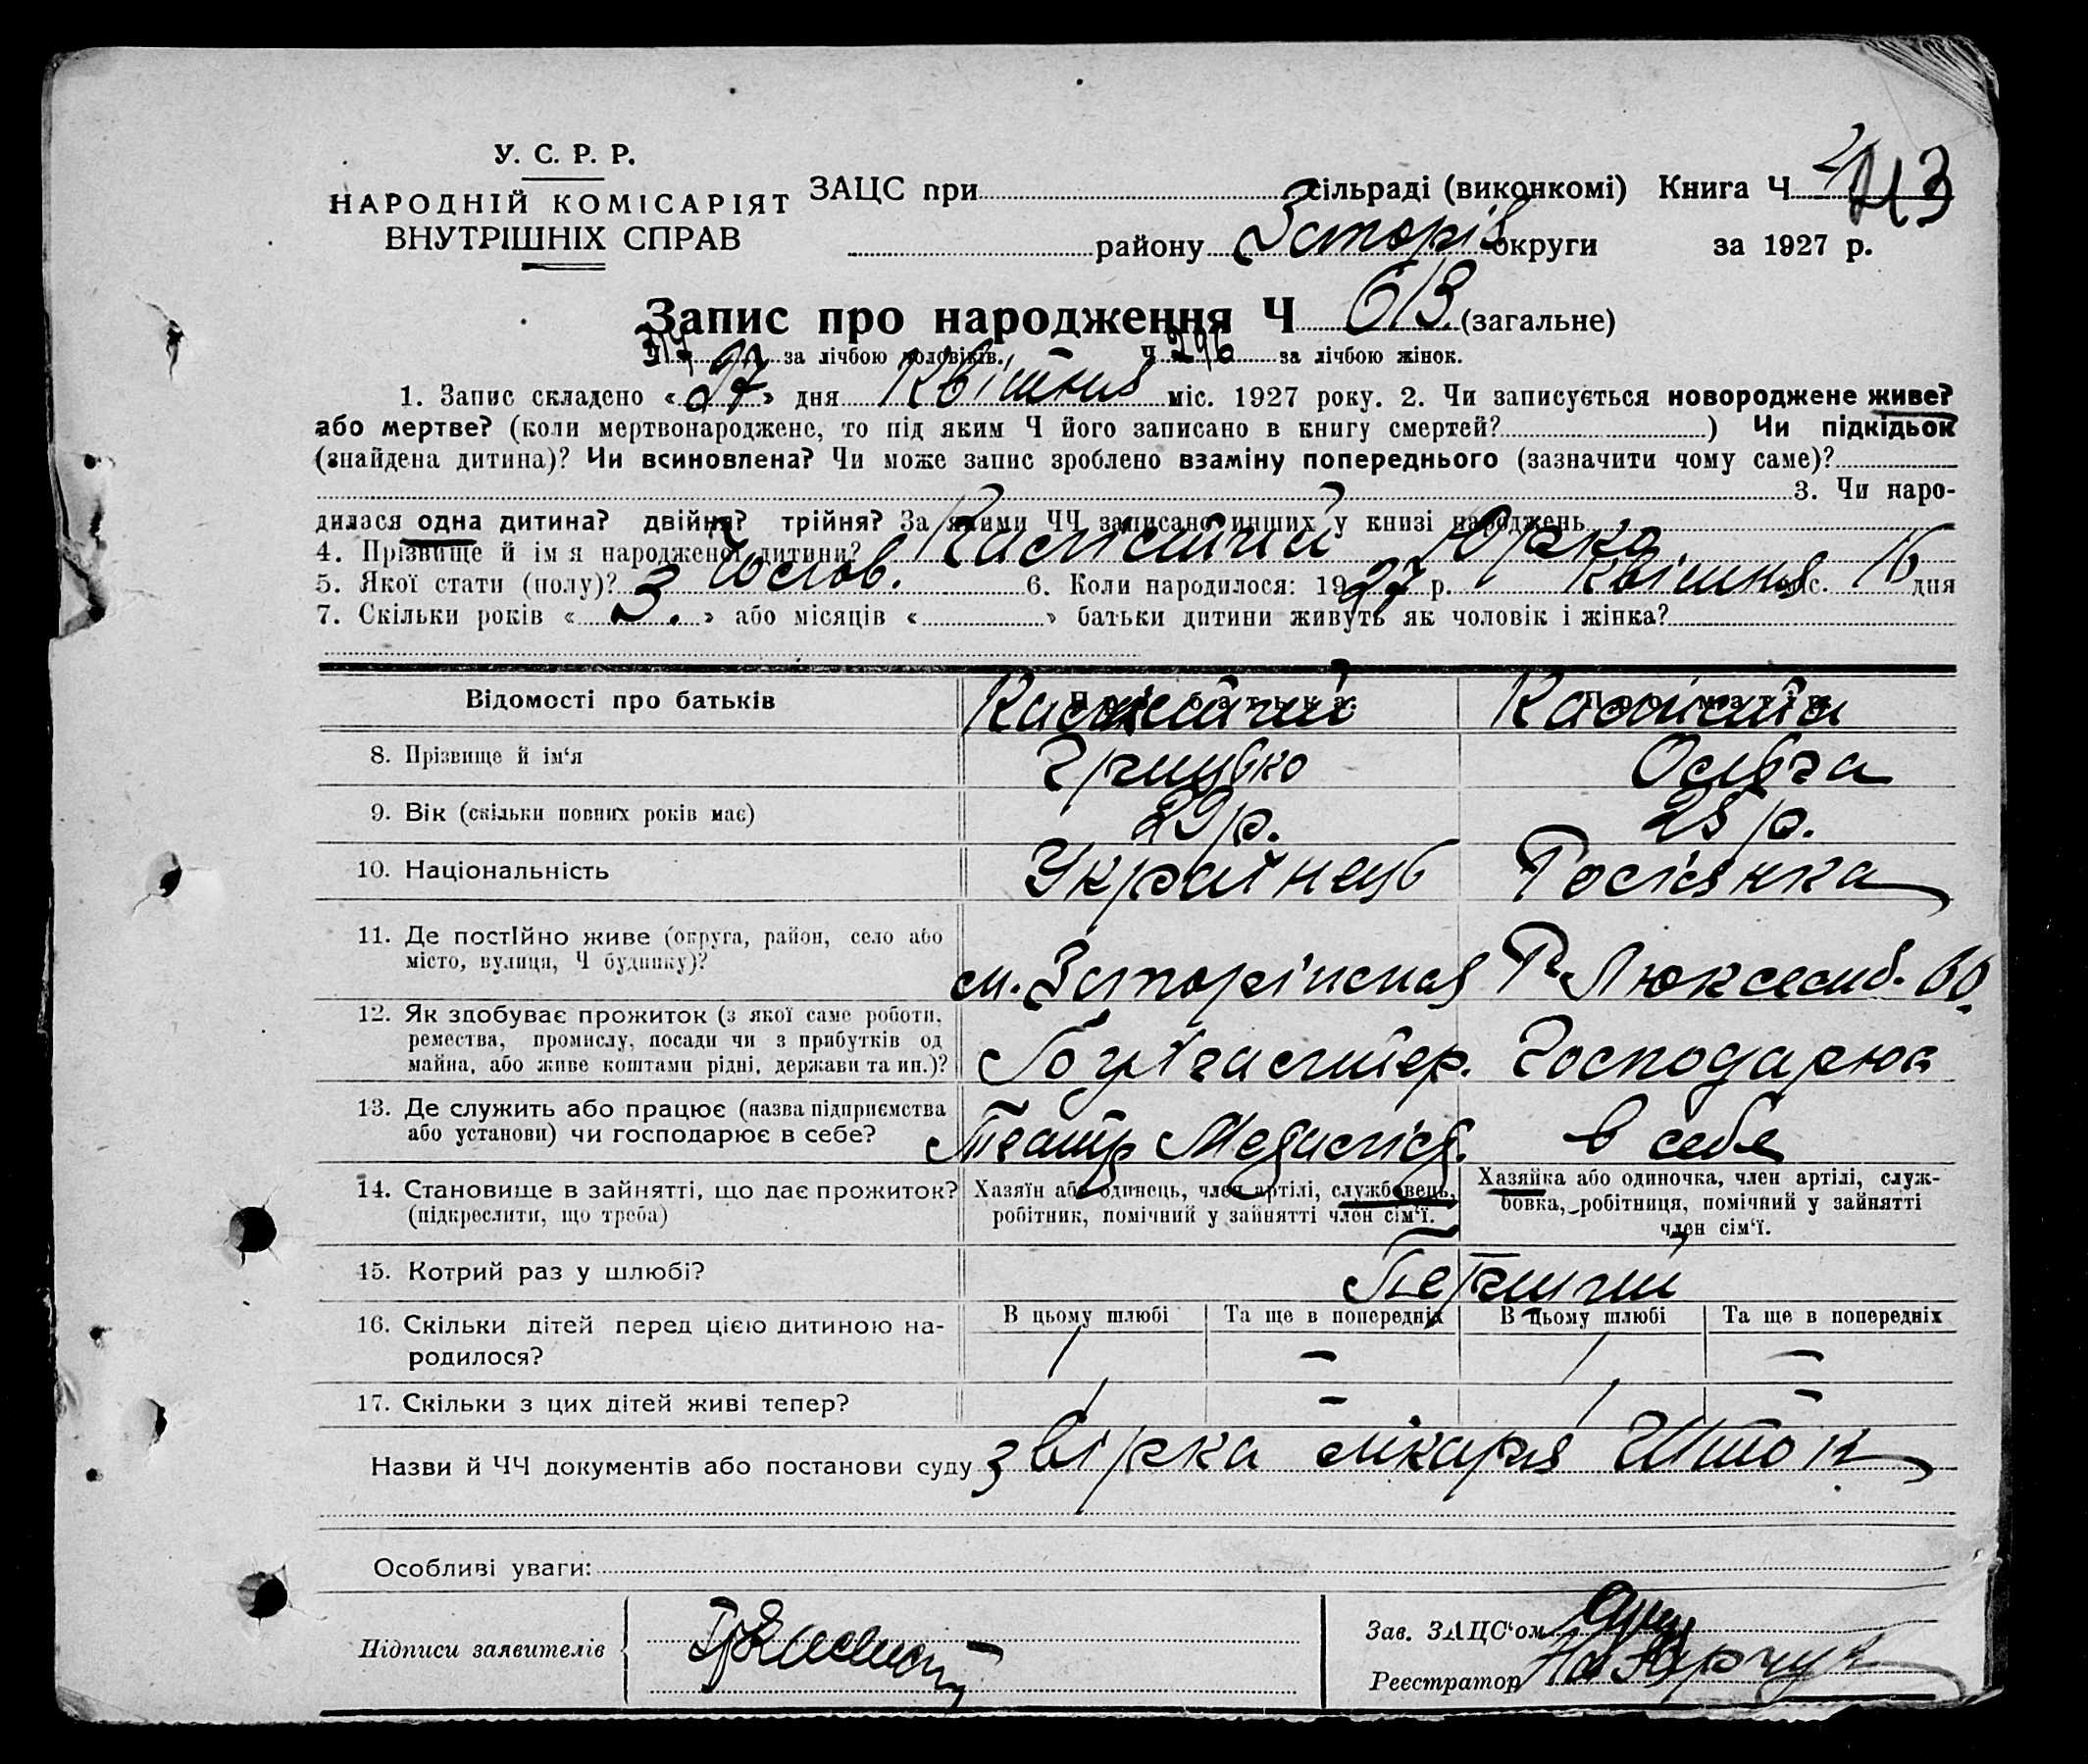 У. С. Р. Р.
НАРОДНІЙ КОМІСАРІЯТ
ВНУТРІШНІХ СПРАВ
ЗАЦС при сільраді (виконкомі) Книга Ч
району округи за 1927 р.
Запис про народження Ч 613 (загальне)
Ч за лічбою чоловіків, Ч 296 за лічбою жінок.
1. Запис складено «27» дня Квітня міс. 1927 року. 2. Чи записується новороджене живе?
або мертве? (коли мертвонароджене, то під яким Ч його записано в книгу смертей? ) Чи підкідьок
(знайдена дитина)? Чи всиновлена? Чи може запис зроблено взаміну попереднього (зазначити чому саме)?
3. Чи наро-
дилася одна дитина? двійня? трійня? За якими ЧЧ записано инших у книзі народжень
4. Прізвище й ім я народженої дитини? Юрко
5. Якої стати (полу)? Чолов. 6. Коли народилося: 1927 р. Квітня міс. 16 дня
7. Скільки років «3.» або місяців « » батьки дитини живуть як чоловік і жінка?
Відомості про батьків
8. Прізвище й ім‘я Грицько Ольга
9. Вік (скільки повних років має) 29 р. 28 р.
10. Національність Українець Росіянка
11. Де постійно живе (округа, район, село або
місто, вулиця, Ч будинку)? м. Р. Люксемб. 60.
12. Як здобуває прожиток (з якої саме роботи,
ремества, промислу, посади чи з прибутків од
майна, або живе коштами рідні, держави та ин.)? Бухгалтер. Господарює
13. Де служить або працює (назва підприємства
або установи) чи господарює в себе? Театр в себе
14. Становище в зайнятті, що дає прожиток?
(підкреслити, що треба)
Хазяїн або одинець, член артілі, службовець,
робітник, помічний у зайнятті член сім‘ї.
Хазяйка або одиночка, член артілі, служ-
бовка, робітниця, помічний у зайнятті
член сім‘ї.
15. Котрий раз у шлюбі? Перший
В цьому шлюбі Та ще в попередніх В цьому шлюбі Та ще в попередніх
16. Скільки дітей перед цією дитиною на-
родилося? 1 — 1 —
17. Скільки з цих дітей живі тепер? 1 — 1 —
Назви й ЧЧ документів або постанови суду звірка лікаря Шток
Особливі уваги:
Підписи заявителів
Зав. ЗАЦС‘ом
Реєстратор